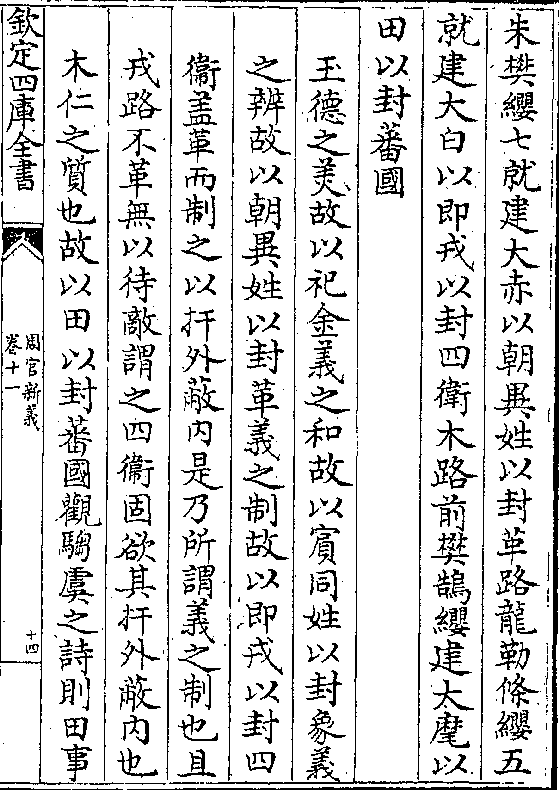 朱樊纓七就建大赤以朝異姓以封革路龍勒條纓五
就建大白以即戎以封四衛木路前樊鵠纓建大麾以
田以封蕃國
玉德之美故以祀金義之和故以賓同姓以封象義
之辨故以朝異姓以封革義之制故以即戎以封四
衞蓋革而制之以扞外蔽内是乃所謂義之制也且
戎路不革無以待敵謂之四衞固欲其扞外蔽内也
木仁之質也故以田以封蕃國觀騶虞之詩則田事
欽定四庫全書
周官新義
卷十一
十四